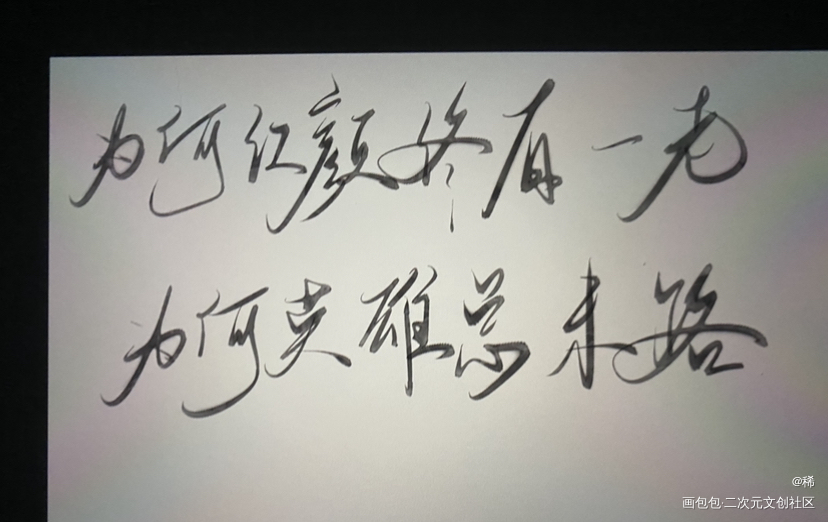 为何红颜终有一老
为何英雄总末路
@稀
画包包·二次元文创社区